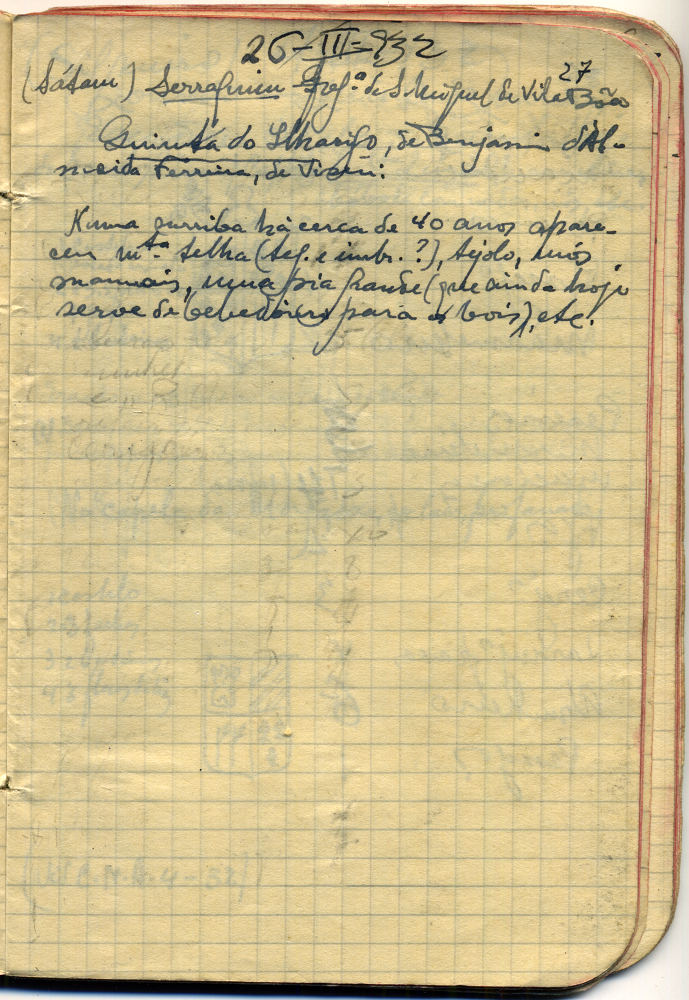 26-III-932
27
(Sátam) Serraquim - Freg.ª de S. Miguel de Vila Bôa
Quinta do , de Benjamim d'Al-
meida Ferreira, de Viseu:
Numa surriba há cerca de 40 anos apare-
ceu m.ta telha (teg. e imbr. ?), tijolo, mós
manuais, uma pia grande (que ainda hoje
serve de bebedoiro para os bois), etc.